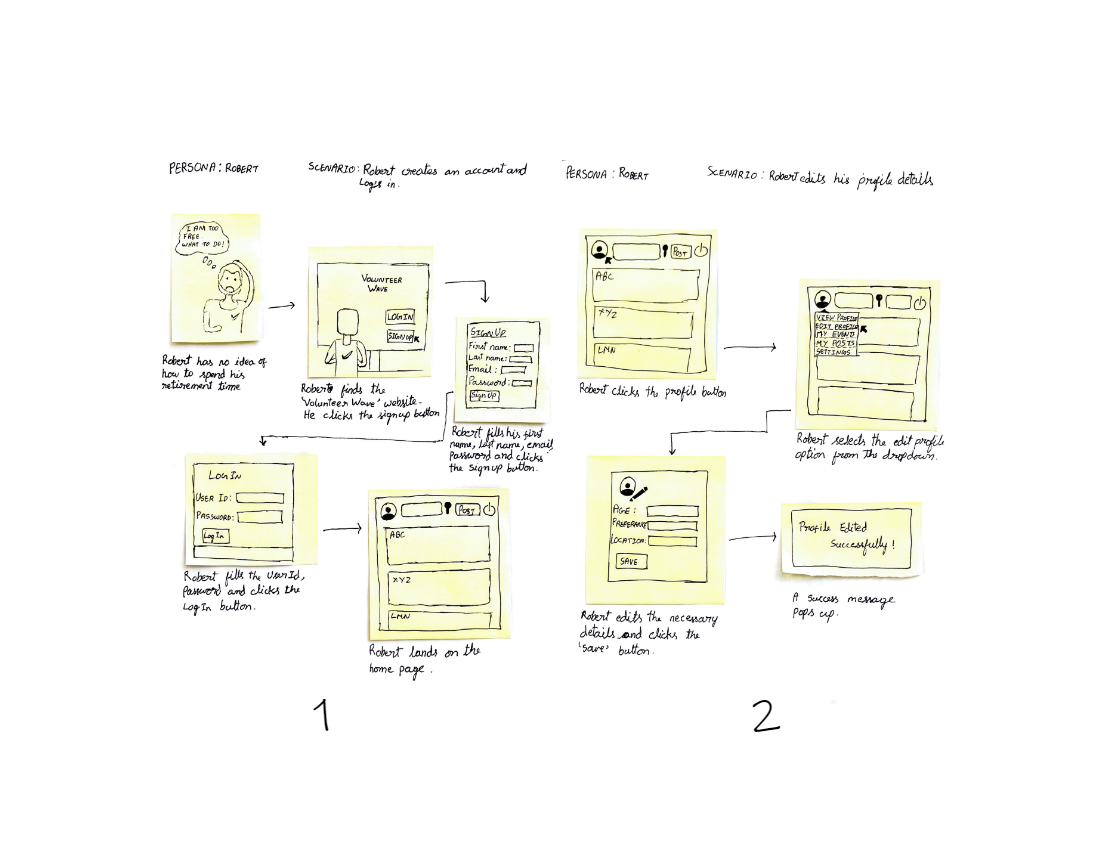 PERSONA: ROBERT
SCENARIO: Robert creates an account and
Logs in.
I AM TOO
FREE
WHAT TO DO!
Robert has no idea of
how to spend his
retirement time
VOLUNTEER
WAVE
LOGIN
SIGNUP
Robert finds the
'Volunteer Wave' website.
He clicks the signup button
SIGNUP
First name:
Last name:
Email:
Password:
Sign Up
Robert fills his first
name, last name, email,
Password and clicks
the sign up button.
LOGIN
USER ID:
PASSWORD:
Log In
Robert fills the UserId,
Password and clicks the
Log In button.
POST
ABC
XYZ
LMN
Robert lands on the
home page.
1
PERSONA: ROBERT
SCENARIO: Robert edits his profile details
POST
ABC
XYZ
LMN
Robert clicks the profile button
VIEW PROFILE
EDIT PROFILE
MY EVENT
MY POSTS
SETTINGS
Robert selects the edit profile
option from the dropdown.
AGE:
LOCATION:
SAVE
Robert edits the necessary
details and clicks the
'save' button.
Profile Edited
Successfully!
A success message
Pops up.
2